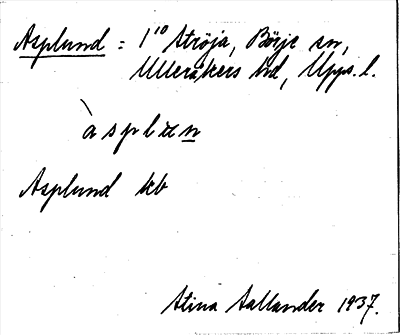 Asplund = 1/0 Ströja, Börje sn,
Ulleråkers hd, Upps. l.
àspl
Asplund kb
Stina Sallander 1937.